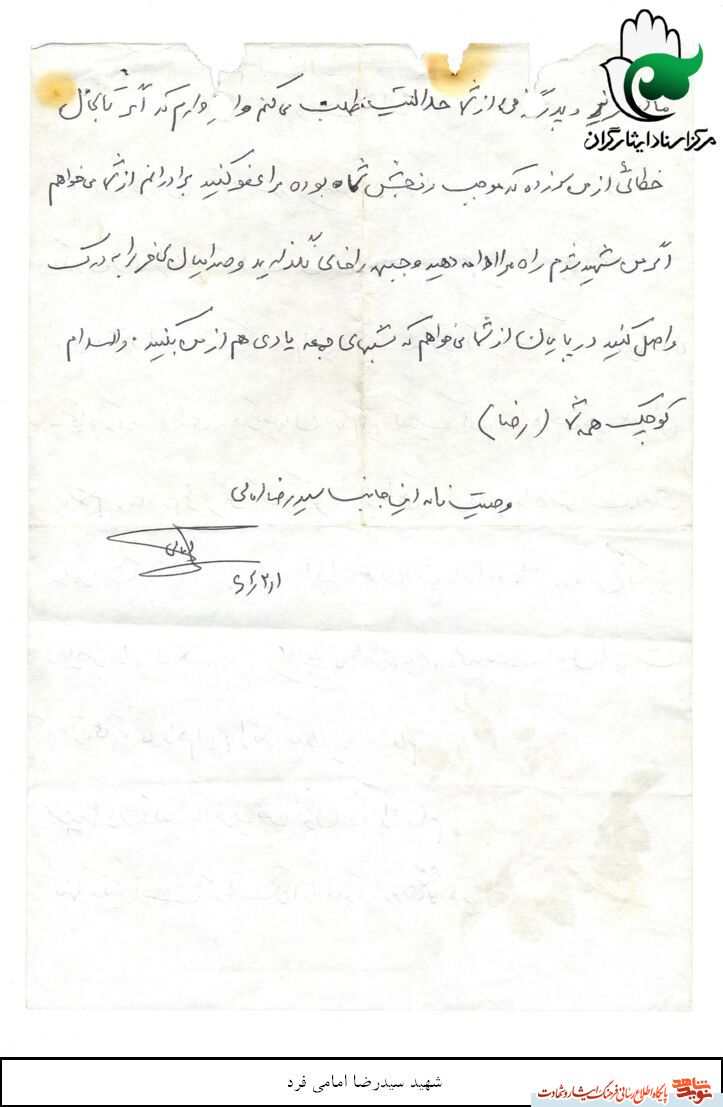 و پدر از شما حلالیت طلب می‌کنم و دارم که اگر تا بحال
خطائی از من سرزده که موجب رنجش شما بوده مرا عفو کنید برادرانم از شما می‌خواهم
اگر من شهید شدم راه مرا ادامه دهید و جبهه را خالی نگذارید و صدامیان کافر را به درک
واصل کنید در پایان از شما می‌خواهم که شبهای جمعه یادی هم از من بکنید . والسلام
کوچک همه شما (رضا)
وصیت نامه اینجانب سید رضا امامی
مرکز اسناد ایثارگران
شهید سیدرضا امامی فرد
نوید شاهد
پایگاه اطلاع رسانی فرهنگ ایثار و شهادت